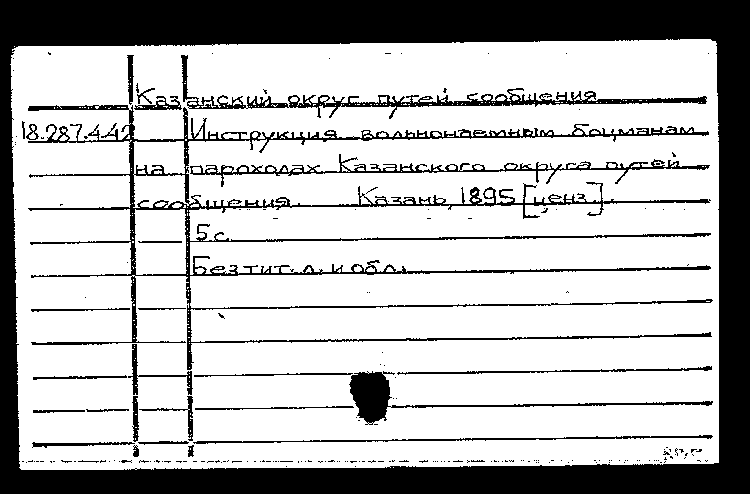 Казанский округ путей сообщения
18.287.4.42 Инструкция вольнонаемным боцманам
на пароходах Казанского округа путей
сообщения. Казань, 1895 [ценз.].
5 с.
Без тит. л. и обл.